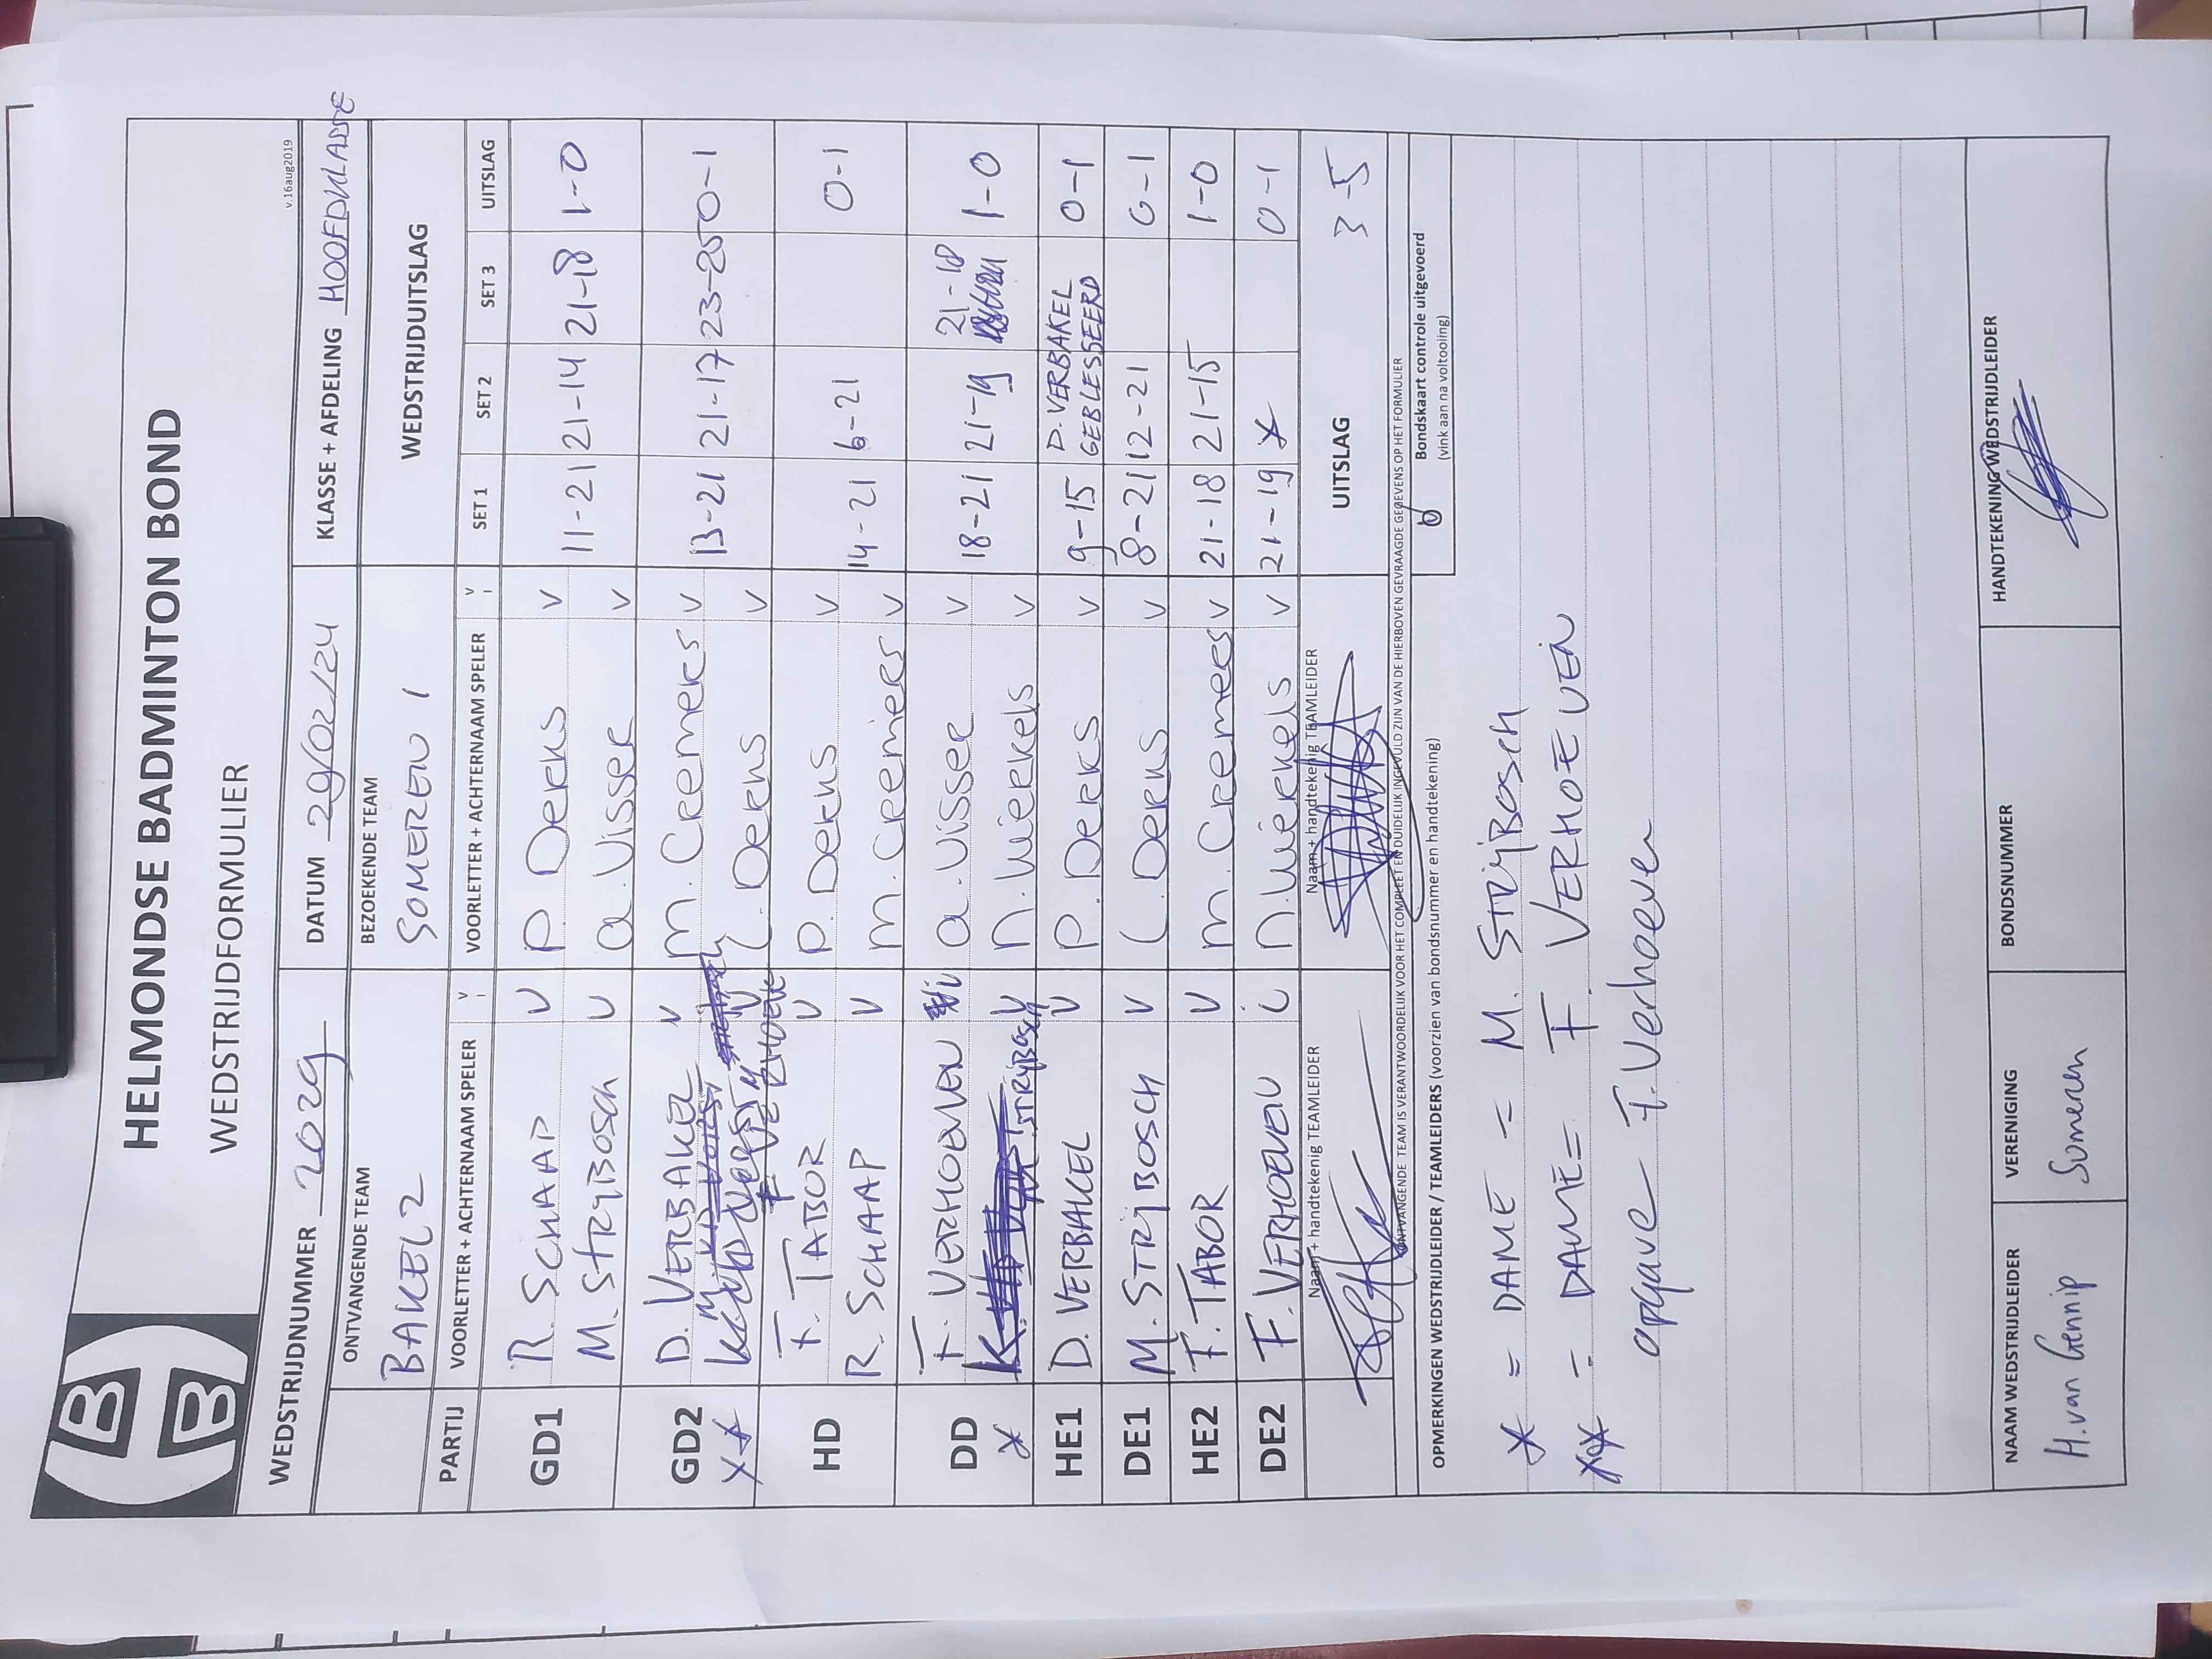 HELMONDSE BADMINTON BOND
WEDSTRIJDFORMULIER
v.16aug2019
WEDSTRIJDNUMMER 2029 DATUM 29/02/24 KLASSE + AFDELING HOOFDKLASSE
ONTVANGENDE TEAM BEZOEKENDE TEAM WEDSTRIJDUITSLAG
BAKEL 2 SOMEREN 1
PARTIJ VOORLETTER + ACHTERNAAM SPELER V VOORLETTER + ACHTERNAAM SPELER V SET 1 SET 2 SET 3 UITSLAG
GD1 R. SCHAAP V P. Derks V 11-21 21-14 21-18 1-0
M. STRYBOSCH V a. Visser V
GD2 D. VERBAKEL V M. Creemers V 13-21 21-17 23-25 0-1
** F. VERHOEVEN V L. Derks V
HD F. TABOR V P. Derks V 14-21 6-21 0-1
R. SCHAAP V M. Creemers V
DD F. VERHOEVEN i a. Visser V 18-21 21-19 21-18 1-0
* STRIJBOSCH V n. Wierkels V
HE1 D. VERBAKEL V P. Derks V 9-15 D. VERBAKEL GEBLESSEERD 0-1
DE1 M. STRIJBOSCH V L. Derks V 8-21 12-21 0-1
HE2 F. TABOR V M. Creemers V 21-18 21-15 1-0
DE2 F. VERHOEVEN i n. Wierkels V 21-19 * 0-1
Naam + handtekenig TEAMLEIDER Naam + handtekenig TEAMLEIDER UITSLAG 3-5
ONTVANGENDE TEAM IS VERANTWOORDELIJK VOOR HET COMPLEET EN DUIDELIJK INGEVULD ZIJN VAN DE HIERBOVEN GEVRAAGDE GEGEVENS OP HET FORMULIER
OPMERKINGEN WEDSTRIJDLEIDER / TEAMLEIDERS (voorzien van bondsnummer en handtekening)
V Bondskaart controle uitgevoerd
(vink aan na voltooiing)
* = DAME = M. STRIJBOSCH
** = DAME = F. VERHOEVEN
opgave F. Verhoeven
NAAM WEDSTRIJDLEIDER VERENIGING BONDSNUMMER HANDTEKENING WEDSTRIJDLEIDER
H. van Gennip Someren